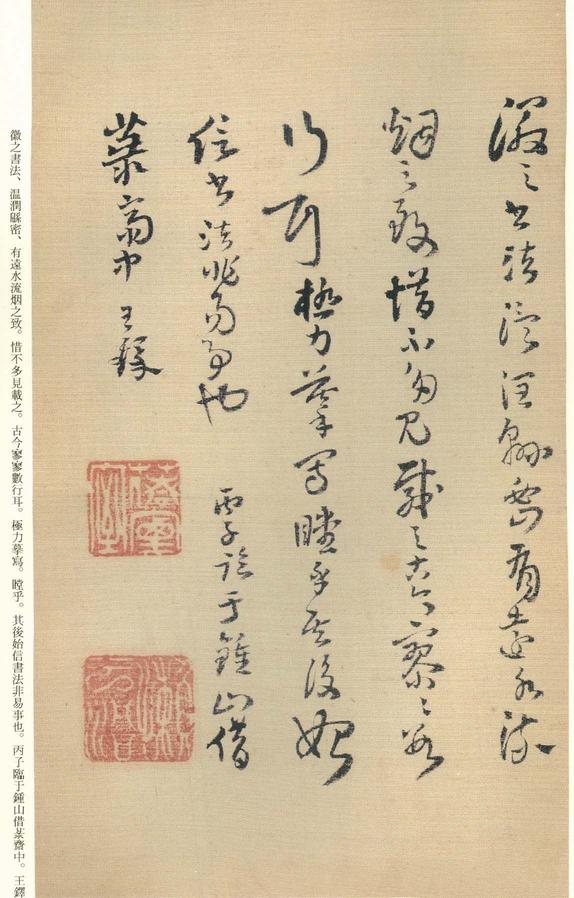 徽之書法溫潤緜密有遠水流
烟之致惜不多見載之古今寥寥數
行耳極力摹寫瞠乎其後始
信書法非易事也　丙子臨于鍾山借
菉齋中王鐸
徽之書法、溫潤緜密、有遠水流烟之致。惜不多見載之。古今寥寥數行耳。極力摹寫。瞠乎。其後始信書法非易事也。丙子臨于鍾山借菉齋中。王鐸